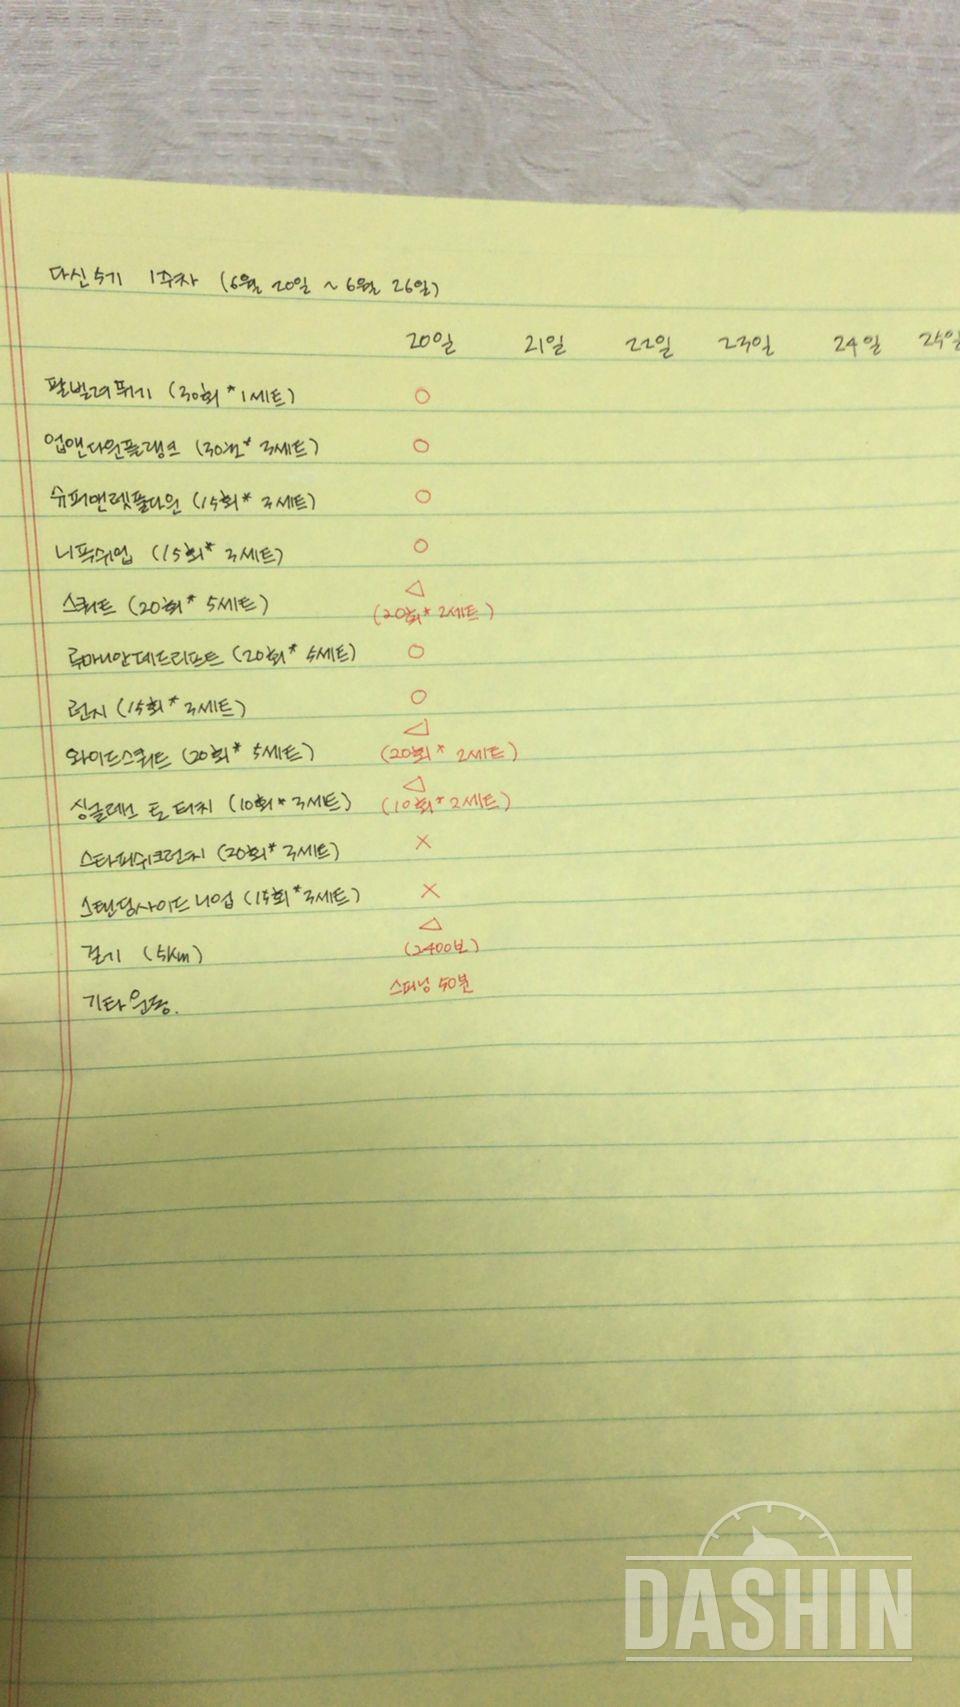 다신 5기 1주차 (6월 20일 ~ 6월 26일)
20일 21일 22일 23일 24일 25일
팔벌려뛰기 (30회 * 1세트) ○
업앤다운플랭크 (30번 * 3세트) ○
슈퍼맨렛풀다운 (15회 * 3세트) ○
니푸쉬업 (15회 * 3세트) ○
스쿼트 (20회 * 5세트) △
(20회 * 2세트)
루마니안데드리프트 (20회 * 5세트) ○
런지 (15회 * 3세트) ○
와이드스쿼트 (20회 * 5세트) △
(20회 * 2세트)
싱글레그 토 터치 (10회 * 3세트) △
(10회 * 2세트)
스타피쉬크런치 (20회 * 3세트) ×
스탠딩사이드 니업 (15회 * 3세트) ×
걷기 (5km) △
(2400보)
기타운동. 스피닝 50분
DASHIN